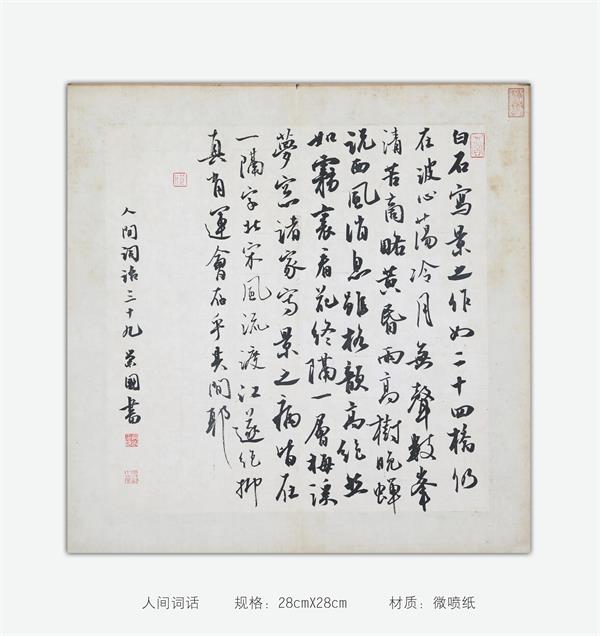 白石寫景之作如二十四橋仍
在波心蕩冷月無聲數峯
清苦商略黄昏雨高樹晚蟬
説西風消息雖格韻高绝然
如霧裏看花終隔一層梅溪
夢窓諸家寫景之病皆在
一隔字北宋風流渡江遂绝抑
真有運會存乎其間耶
人间词话三十九 國書
人间词话 规格：28cmX28cm 材质：微喷纸